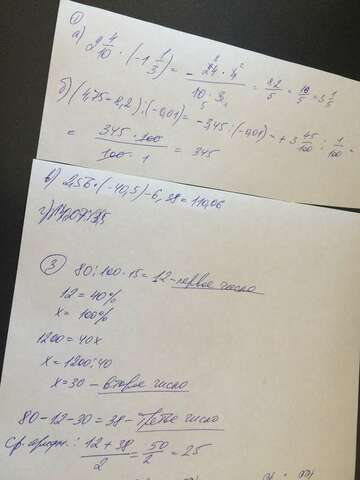 ①
а) 2 4/10 · (-1 1/3) = - 24 · 4 / 10 · 3 = 8·2/5 = 16/5 = 3 1/5
б) (4,75-8,2) : (-0,01) = -3,45 : (-0,01) = + 3 45/100 : 1/100 =
= 345 · 100 / 100 · 1 = 345
в) 2,56 · (-40,5) - 6,38 = 110,06
г)
③
80 : 100 · 15 = 12 - первое число
12 = 40%
x = 100%
1200 = 40x
x = 1200 : 40
x = 30 - второе число
80 - 12 - 30 = 38 - третье число
Ср. арифм.: 12 + 38 / 2 = 50/2 = 25